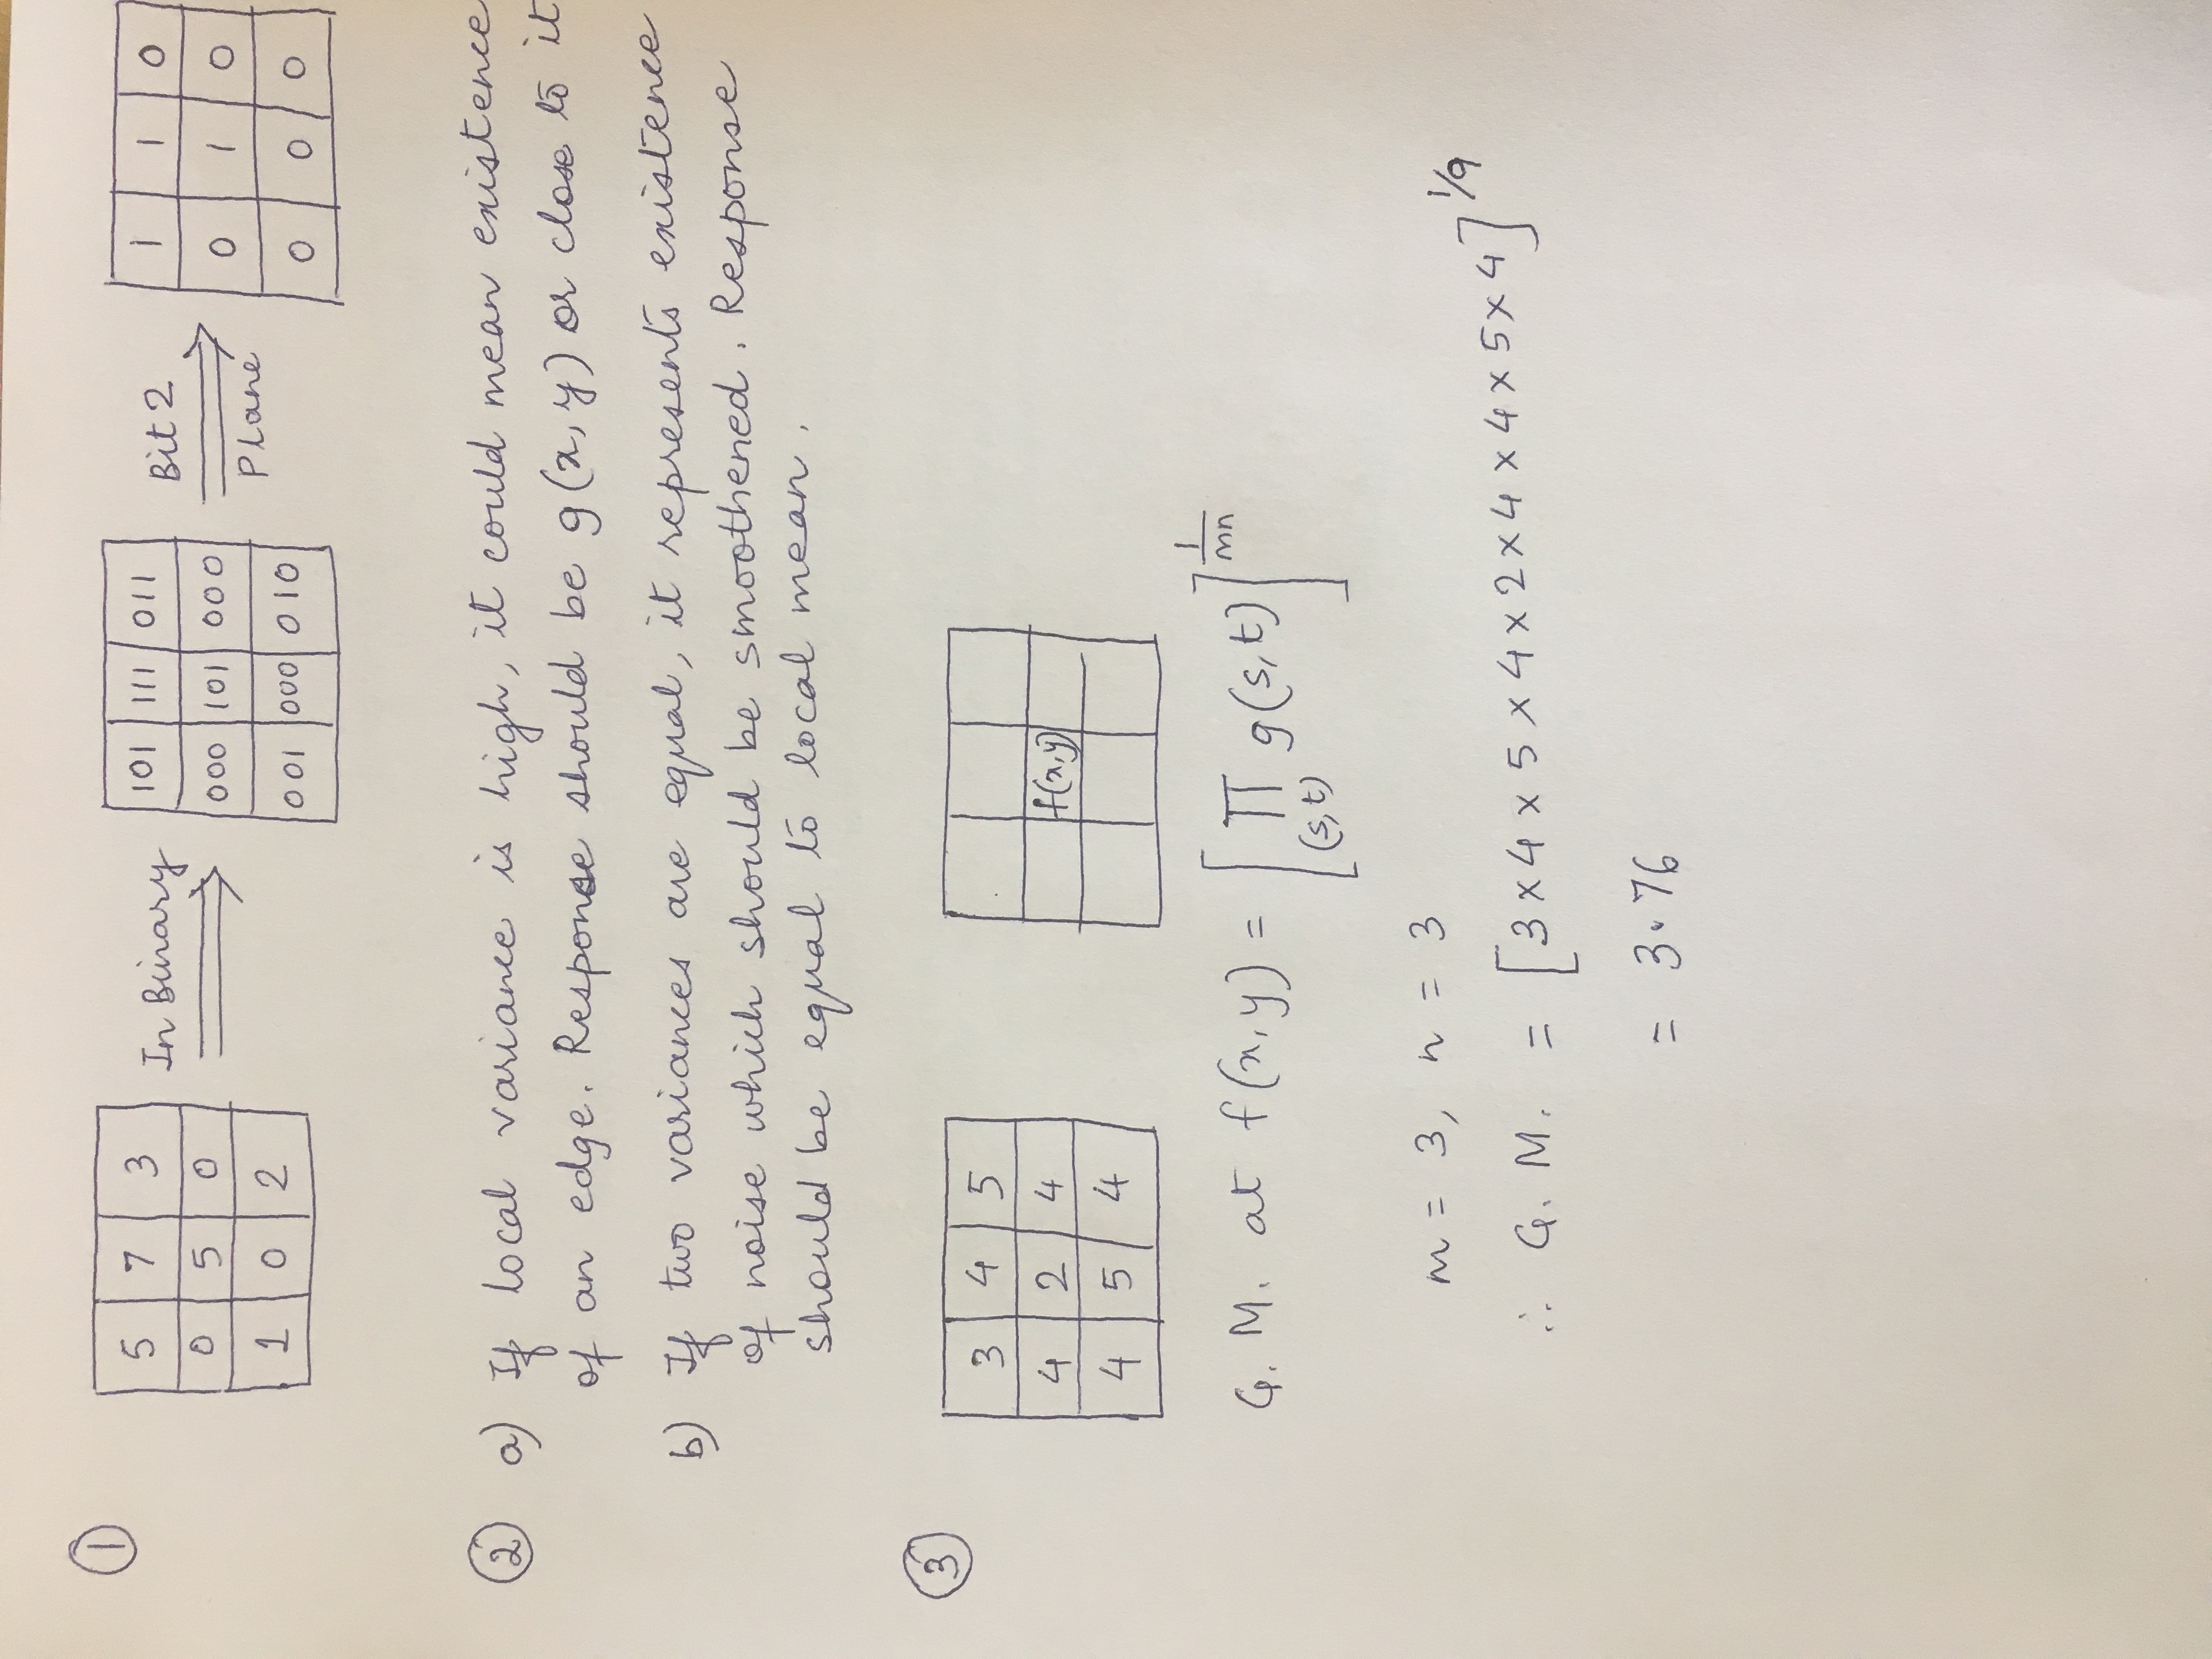 1
5 7 3
0 5 0
1 0 2
In Binary
101 111 011
000 101 000
001 000 010
Bit 2
Plane
1 1 0
0 1 0
0 0 0
2 a) If local variance is high, it could mean existence
of an edge. Response should be g(x, y) or close to it
b) If two variances are equal, it represents existence
of noise which should be smoothened. Response
should be equal to local mean.
3
3 4 5
4 2 4
4 5 4
f(x,y)
G. M. at f(x, y) = [∏(s,t) g(s, t)]^(1/mn)
m = 3, n = 3
∴ G. M. = [3 × 4 × 5 × 4 × 2 × 4 × 4 × 5 × 4]^1/9
= 3.76